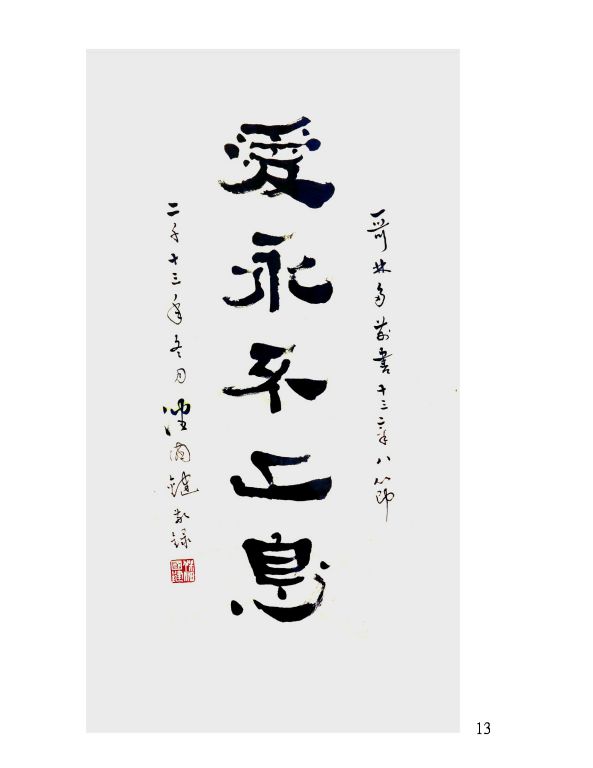 哥林多前書十三章八節
愛永不止息
二千十三年冬月 國敬錄
13